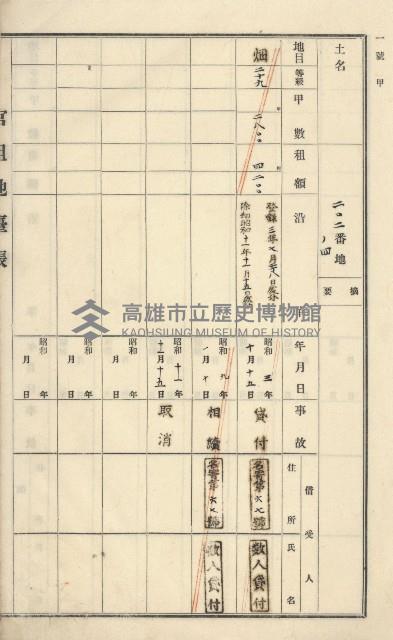 一號甲
土名
二〇二番地
ノ四
摘要
地目 等級 甲數 租額 沿革
畑 二十九 二八〇〇 四二〇〇
年月日 事故 借受人 住所 氏名
昭和三年十月十五日 貸付 名寄第六七號 數人貸付
昭和九年一月十日 相續 名寄第六七號 數人貸付
昭和十一年十一月十五日 取消
昭和 年 月 日
昭和 年 月 日
昭和 年 月 日
官租地臺帳
高雄市立歷史博物館
KAOHSIUNG MUSEUM OF HISTORY